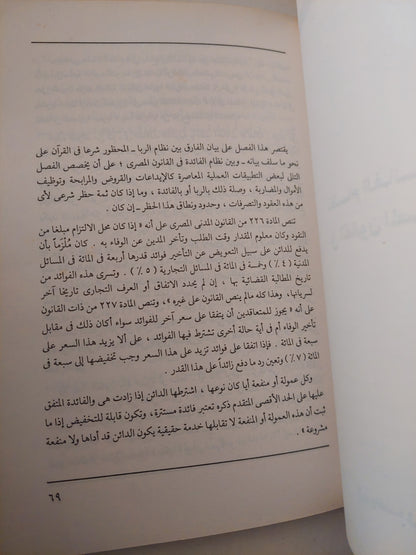 يقتصر هذا الفصل على بيان الفارق بين نظام الربا ــ المحظور شرعا فى القرآن على
نحو ما سلف بيانه ــ وبين نظام الفائدة فى القانون المصرى ؛ على أن يخصص الفصل
التالى لبعض التطبيقات العملية المعاصرة كالإيداعات والقروض والمرابحة وتوظيف
الأموال والمضاربة ، وصلة ذلك بالربا أو بالفائدة ، وما إذا كان ثمة حظر شرعى لأى
من هذه العقود والتصرفات ، وحدود ونطاق هذا الحظر ــ إن كان .
تنص المادة ٢٢٦ من القانون المدنى المصرى على أنه « إذا كان محل الالتزام مبلغا من
النقود وكان معلوم المقدار وقت الطلب وتأخر المدين عن الوفاء به ، كان مُلْزَماً بأن
يدفع للدائن على سبيل التعويض عن التأخير فوائد قدرها أربعة فى المائة فى المسائل
المدنية ( ٤٪ ) وخمسة فى المائة فى المسائل التجارية ( ٥٪ ) . وتسرى هذه الفوائد من
تاريخ المطالبة القضائية بها ، إن لم يحدد الاتفاق أو العرف التجارى تاريخا آخر
لسريانها ، وهذا كله مالم ينص القانون على غيره » ، وتنص المادة ٢٢٧ من ذات القانون
على أنه « يجوز للمتعاقدين أن يتفقا على سعر آخر للفوائد سواء أكان ذلك فى مقابل
تأخير الوفاء أم فى أية حالة أخرى تشترط فيها الفوائد ، على ألا يزيد هذا السعر على
سبعة فى المائة . فإذا اتفقا على فوائد تزيد على هذا السعر وجب تخفيضها إلى سبعة فى
المائة ( ٧٪ ) وتعين رد ما دفع زائداً على هذا القدر .
وكل عمولة أو منفعة أيا كان نوعها ، اشترطها الدائن إذا زادت هى والفائدة المتفق
عليها على الحد الأقصى المتقدم ذكره تعتبر فائدة مستترة ، وتكون قابلة للتخفيض إذا ما
ثبت أن هذه العمولة أو المنفعة لا تقابلها خدمة حقيقية يكون الدائن قد أداها ولا منفعة
مشروعة » .
٦٩